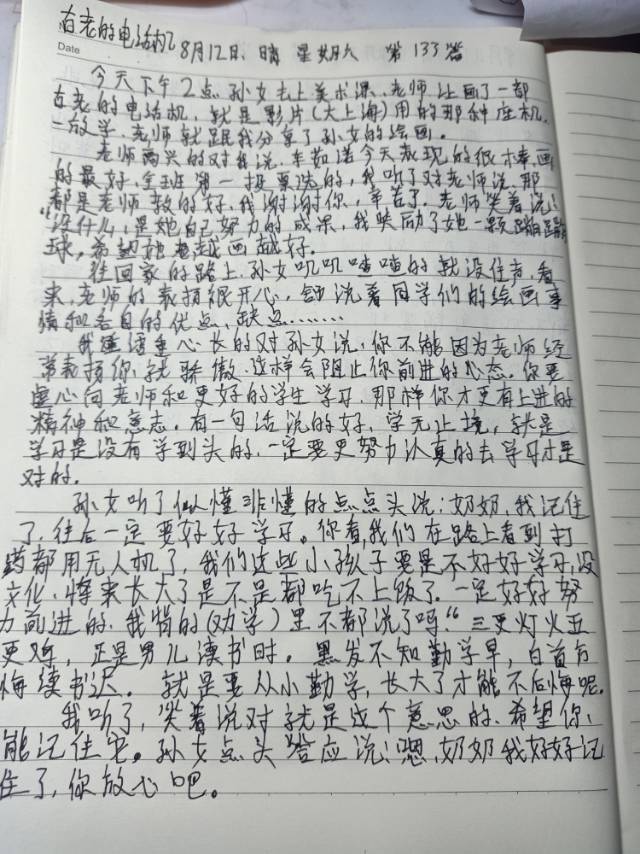 古老的电话机
Date 8月12日、晴 星期六 第133答
今天下午2点孙女去上美术课、老师让画了一部
古老的电话机，就是影片(大上海)用的那种座机、
一放学、老师就跟我分享了孙女的绘画。
老师高兴的对我说、车茹诺今天表现的很棒、画
的最好、全班第一投票选的，我听了对老师说、那
都是老师教的好、我谢谢你，辛苦了、老师笑着说：
“没什么，是她自己努力的成果，我奖励了她一颗蹦蹦
球，希望她越画越好。
往回家的路上、孙女叽叽喳喳的就没住声、看
来、老师的表扬很开心、她说着同学们的绘画事
情和各自的优点、缺点………
我语重心长的对孙女说，你不能因为老师经
常表扬你、就骄傲、这样会阻止你前进的心态。你要
虚心向老师和更好的学生学习、那样你才更有上进的
精神和意志。有一句话说的好、学无止境，就是
学习是没有学到头的、一定要更努力认真的去学习才是
对的。
孙女听了似懂非懂的点点头说：奶奶，我记住
了，往后一定要好好学习。你看，我们在路上看到打
药都用无人机了，我们这些小孩子要是不好好学习，没
文化、将来长大了是不是都吃不上饭了、一定好好努
力前进的、我背的(劝学)里不都说了吗“三更灯火五
更鸡，正是男儿读书时。黑发不知勤学早，白首方
悔读书迟。就是要从小勤学，长大了才能不后悔呢。
我听了，笑着说对就是这个意思的、希望你、
能记住它。孙女点头答应说：嗯，奶奶我好好记
住了，你放心吧。